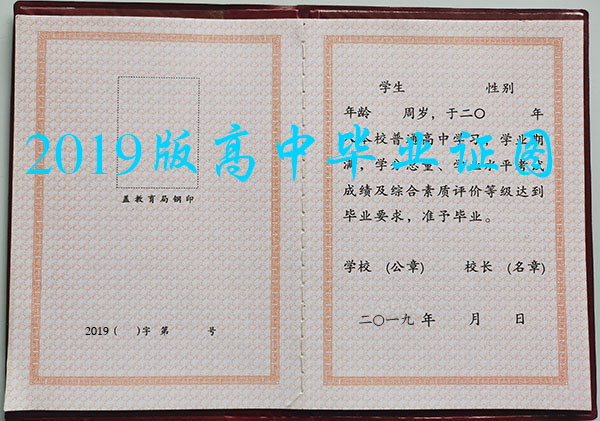 盖教育局钢印
2019（ ）字 第 号
学生 性别
年龄 周岁，于二〇 年
在本校普通高中学习，学业期
满，学分总量、学业水平考试
成绩及综合素质评价等级达到
毕业要求，准予毕业。
学校 (公章) 校长 (名章)
二〇一九 年 月 日
2019版高中毕业证图